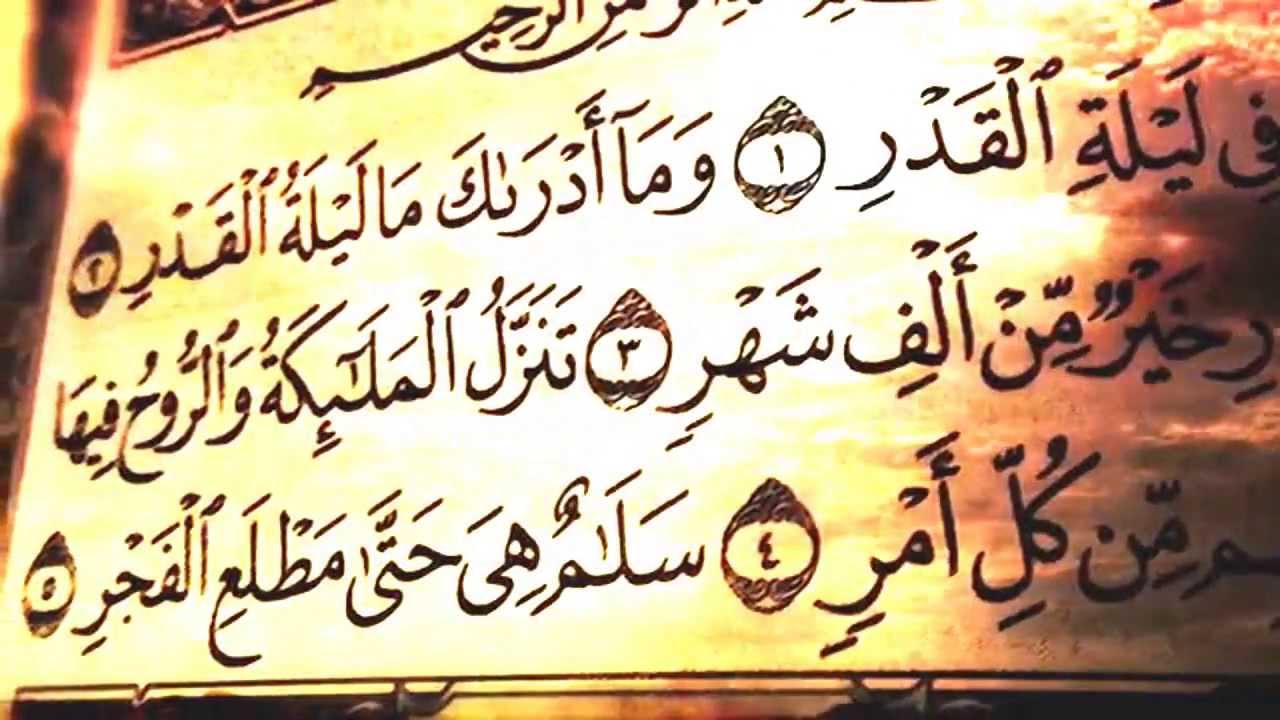 ٱلرَّحِيمِ
فِى لَيْلَةِ ٱلْقَدْرِ ١ وَمَآ أَدْرَىٰكَ مَا لَيْلَةُ ٱلْقَدْرِ ٢
خَيْرٌ مِّنْ أَلْفِ شَهْرٍ ٣ تَنَزَّلُ ٱلْمَلَٰٓئِكَةُ وَٱلرُّوحُ فِيهَا
مِّن كُلِّ أَمْرٍ ٤ سَلَٰمٌ هِىَ حَتَّىٰ مَطْلَعِ ٱلْفَجْرِ ٥